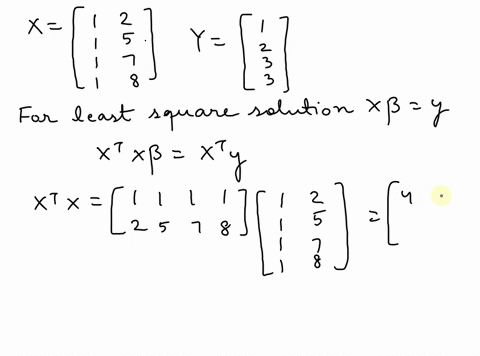 X = [1 2; 1 5; 1 7; 1 8] Y = [1; 2; 3; 3]
For least square solution Xβ = y
Xᵀ Xβ = Xᵀy
Xᵀ X = [1 1 1 1; 2 5 7 8] [1 2; 1 5; 1 7; 1 8] = [4